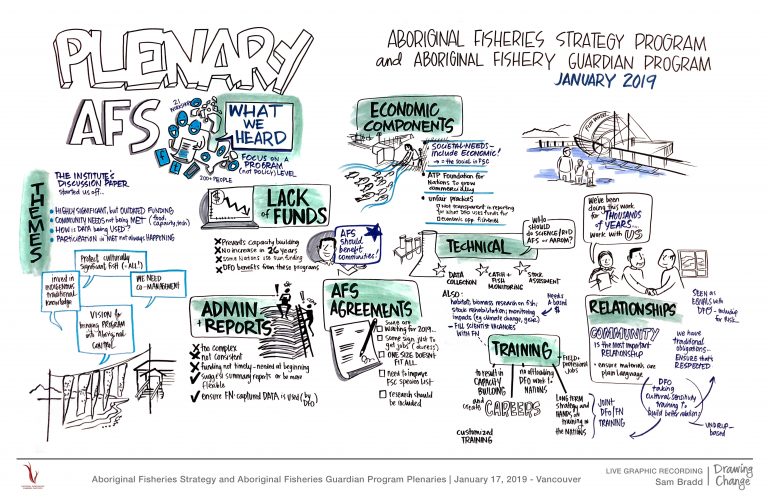 PLENARY
AFS
ABORIGINAL FISHERIES STRATEGY PROGRAM
and ABORIGINAL FISHERY GUARDIAN PROGRAM
JANUARY 2019
21
WHAT
WE
HEARD
FOCUS ON A
PROGRAM
(not POLICY) LEVEL
200+ PEOPLE
THEMES
THE INSTITUTE'S
DISCUSSION PAPER
started us off...
HIGHLY SIGNIFICANT, but OUTDATED FUNDING
COMMUNITY NEEDS not being MET (food, capacity, tech)
HOW is DATA being USED?
PARTICIPATION in MGMT not always HAPPENING
Protect culturally
significant fish (= ALL!)
invest in
INDIGENOUS
traditional
knowledge
WE NEED
CO-MANAGEMENT
VISION for
bringing PROGRAM
into Aboriginal
CONTROL
LACK
of FUNDS
Prevents capacity building
No increase in 26 years
some Nations use own funding
DFO benefits from these programs
AFS
should
benefit
communities!
ADMIN
+ REPORTS
too complex
not consistent
funding not timely - needed at beginning
suggest summary reports or be more
flexible
ensure FN-captured DATA is used (by DFO)
ECONOMIC
COMPONENTS
SOCIETAL NEEDS -
include ECONOMIC!
→ = the social in FSC
ATP Foundation for
Nations to grow
commercially
unfair practices
Not transparent in reporting
for what DFO uses funds for
Economic opp. fisheries
AFS
AGREEMENTS
some are
waiting for 2019...
some sign just to
get jobs (duress)
ONE SIZE DOESN'T
FIT ALL
need to improve
FSC species list
research should
be included
WHO
SHOULD
do SCIENCE/R+D
AFS or AAROM?
TECHNICAL
DATA
COLLECTION
CATCH +
FISH
MONITORING
STOCK
ASSESSMENT
ALSO:
habitat, biomass, research on fish,
stock rehabilitation, monitoring
impacts (eg climate change, gear)
NEEDS
a $
- FILL SCIENTIST VACANCIES
WITH FN
TRAINING
to result in
CAPACITY
BUILDING
and create CAREERS
customized
TRAINING
no offloading
DFO work to
NATIONS
FIELD +
professional
JOBS
LONG TERM
strategy and
HANDS on
training in
the NATIONS
JOINT
DFO/FN
TRAINING
We've been
doing this work
for THOUSANDS
of YEARS...
Work with US
RELATIONSHIPS
SEEN AS
EQUALS with
DFO -
COMMUNITY
IS the MOST IMPORTANT
RELATIONSHIP
- ensure materials are
plain language
we have
traditional
obligations...
ENSURE that's
RESPECTED
DFO
taking
cultural sensitivity
training to
build better relations
UNDRIP-
based
Aboriginal Fisheries Strategy and Aboriginal Fisheries Guardian Program Plenaries | January 17, 2019 - Vancouver
LIVE GRAPHIC RECORDING
Sam Bradd
Drawing
Change